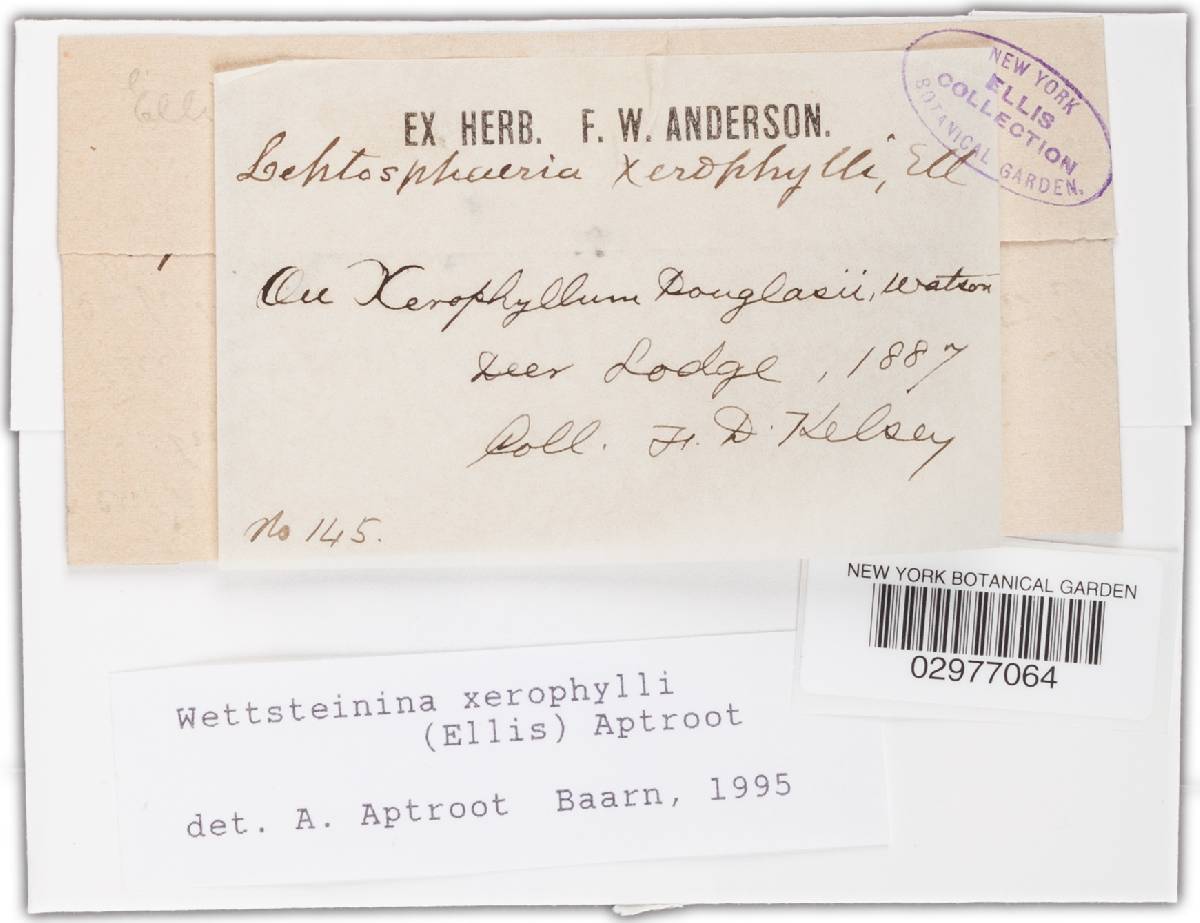 EX HERB. F. W. ANDERSON.
Leptosphaeria xerophylli, Ell
On Xerophyllum Douglasii, Watson
Deer Lodge, 1887
Coll. F. D. Kelsey
No 145.
NEW YORK
ELLIS
COLLECTION
BOTANICAL GARDEN.
NEW YORK BOTANICAL GARDEN
02977064
Wettsteinina xerophylli
(Ellis) Aptroot
det. A. Aptroot Baarn, 1995